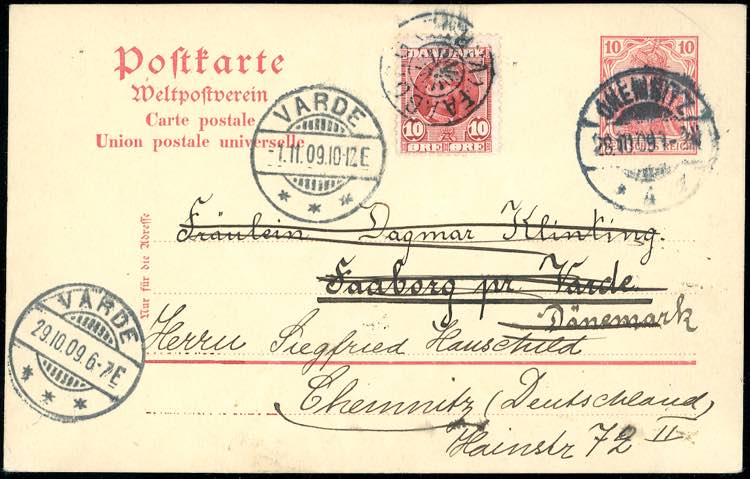 Postkarte
Weltpostverein
Carte postale
Union postale universelle
Nur für die Adresse
VARDE
-1.11.09.10-12E
* * *
DANMARK
10 10
ØRE ØRE
10 10
REICH
CHEMNITZ
* 4
Fräulein Dagmar Klinting.
Faaborg pr. Varde.
Dänemark
VARDE
29.10.09.6-7E
* * *
Herrn Siegfried Hauschild
Chemnitz (Deutschland)
Hainstr 72 II